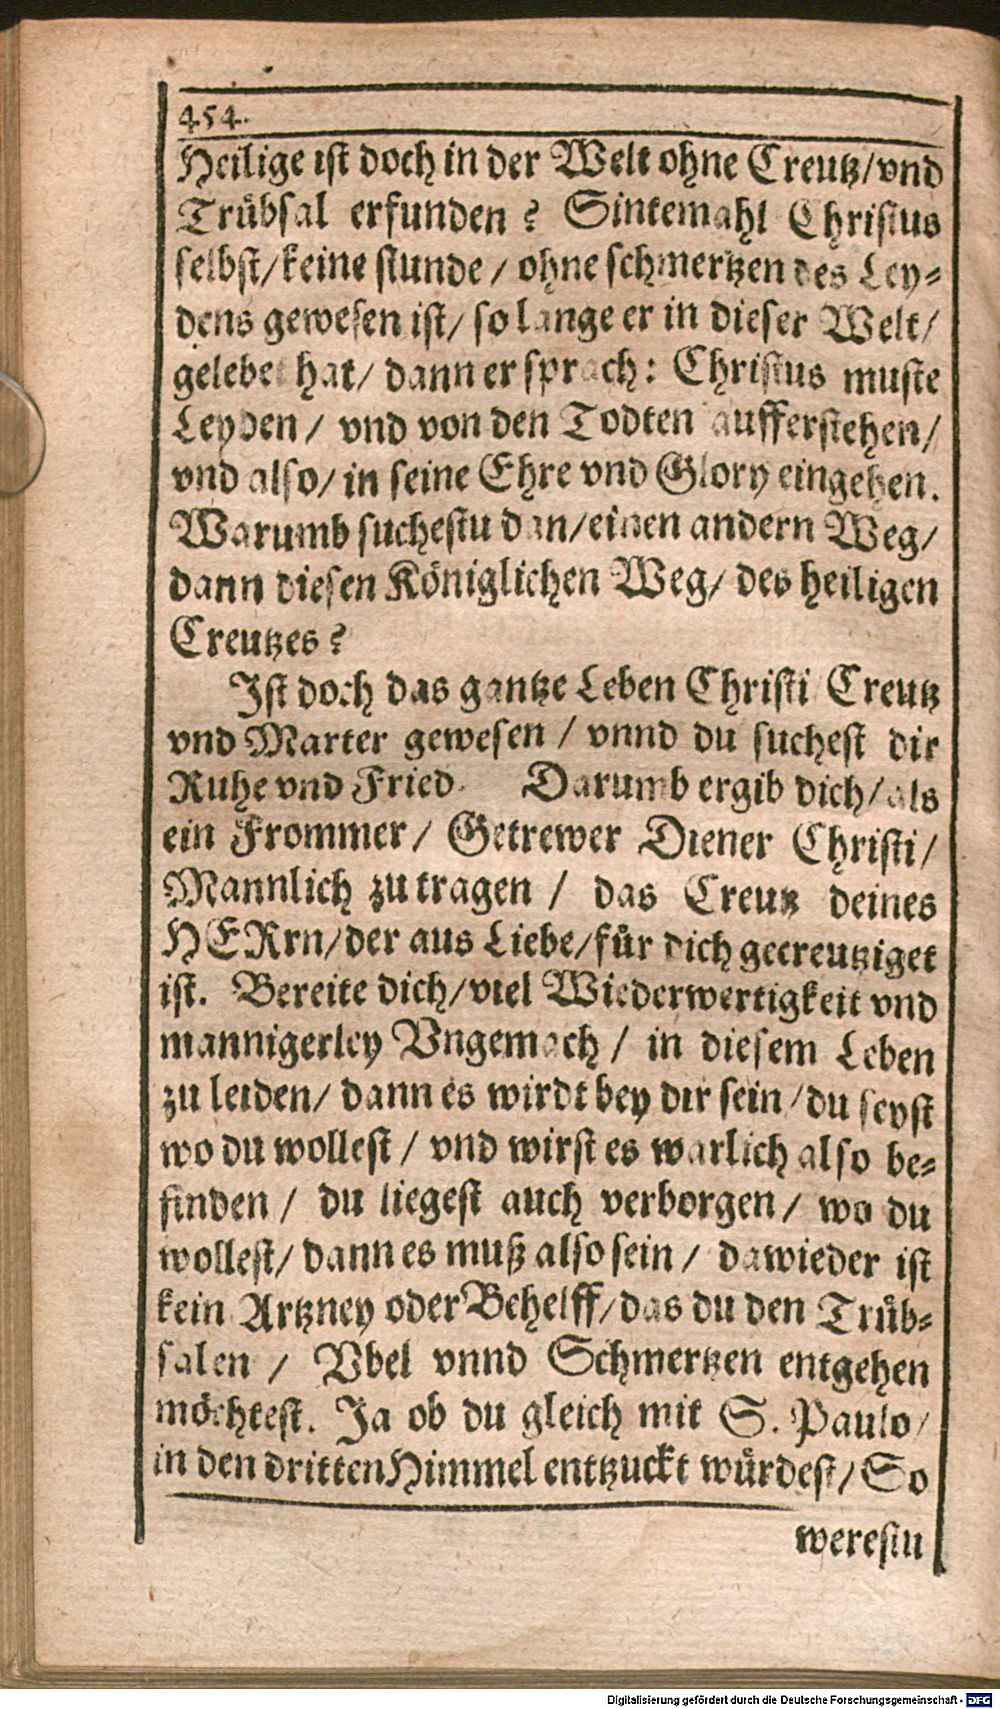 454.
Heilige ist doch in der Welt ohne Creutz/vnd
Trübsal erfunden? Sintemahl Christus
selbst/keine stunde/ ohne schmertzen des Ley-
dens gewesen ist/ so lange er in dieser Welt/
gelebet hat/ dann er sprach: Christus muste
Leyden/ vnd von den Todten aufferstehen/
vnd also/ in seine Ehre vnd Glory eingehen.
Warumb suchestu dan/einen andern Weg/
dann diesen Königlichen Weg/ des heiligen
Creutzes?
Ist doch das gantze Leben Christi Creutz
vnd Marter gewesen/ vnnd du suchest dir
Ruhe vnd Fried. Darumb ergib dich/als
ein Frommer/ Getrewer Diener Christi/
Mannlich zu tragen/ das Creutz deines
HERrn/der aus Liebe/für dich gecreutziget
ist. Bereite dich/viel Wiederwertigkeit vnd
mannigerley Vngemach/ in diesem Leben
zu leiden/ dann es wirdt bey dir sein/du seyst
wo du wollest/ vnd wirst es warlich also be-
finden/ du liegest auch verborgen/ wo du
wollest/ dann es muß also sein/ dawieder ist
kein Artzney oder Behelff/das du den Trüb-
salen/ Vbel vnnd Schmertzen entgehen
möchtest. Ja ob du gleich mit S. Paulo/
in den dritten Himmel entzuckt würdest/ So
werestu
Digitalisierung gefördert durch die Deutsche Forschungsgemeinschaft - DFG